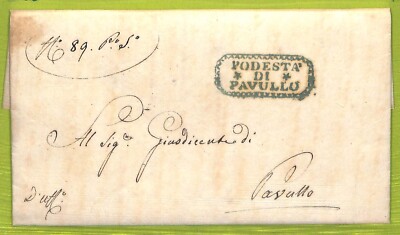 N.° 89. P.° S.°
PODESTA'
* DI *
PAVULLO
Al Sig.r Giusdicente di
Pavullo
D'uff.°